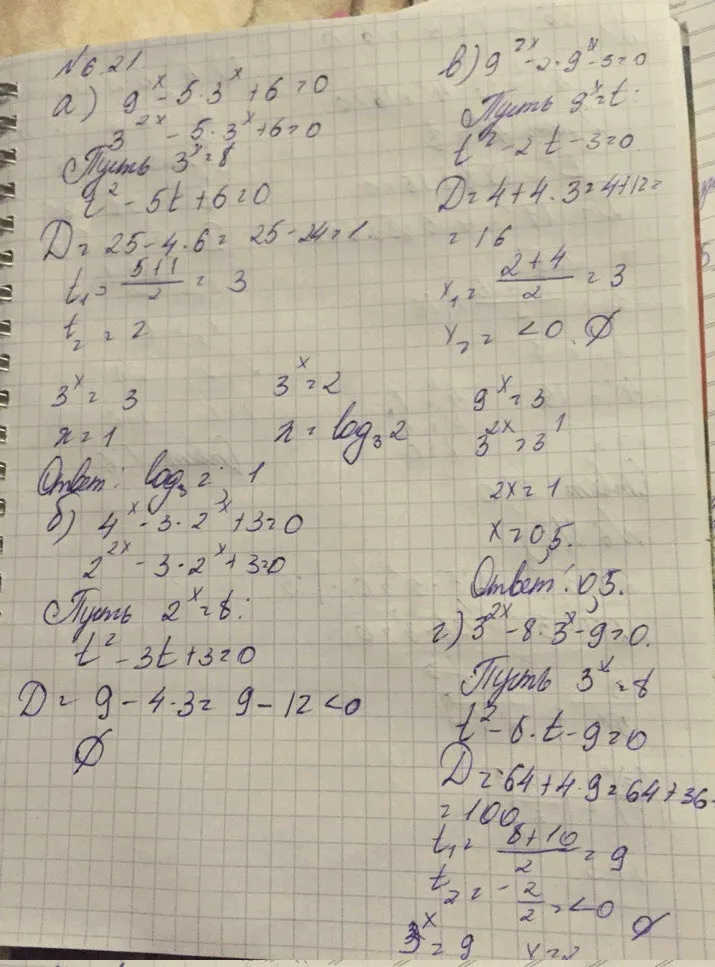 №6.21
а) 9^x - 5·3^x + 6 = 0
3^2x - 5·3^x + 6 = 0
Пусть 3^x = t
t^2 - 5t + 6 = 0
D = 25 - 4·6 = 25 - 24 = 1.
t₁ = (5+1)/2 = 3
t₂ = 2
3^x = 3   3^x = 2
x = 1   x = log₃2
Ответ: log₃2; 1
б) 4^x - 3·2^x + 3 = 0
2^2x - 3·2^x + 3 = 0
Пусть 2^x = t:
t^2 - 3t + 3 = 0
D = 9 - 4·3 = 9 - 12 < 0
∅
в) 9^2x - 2·9^x - 3 = 0
Пусть 9^x = t:
t^2 - 2t - 3 = 0
D = 4 + 4·3 = 4 + 12 =
= 16
x₁ = (2+4)/2 = 3
x₂ = < 0. ∅
9^x = 3
3^2x = 3^1
2x = 1
x = 0,5.
Ответ: 0,5.
г) 3^2x - 8·3^x - 9 = 0.
Пусть 3^x = t
t^2 - 8·t - 9 = 0
D = 64 + 4·9 = 64 + 36
= 100
t₁ = (8+10)/2 = 9
t₂ = -2/2 = < 0 ∅
3^x = 9   x = 2